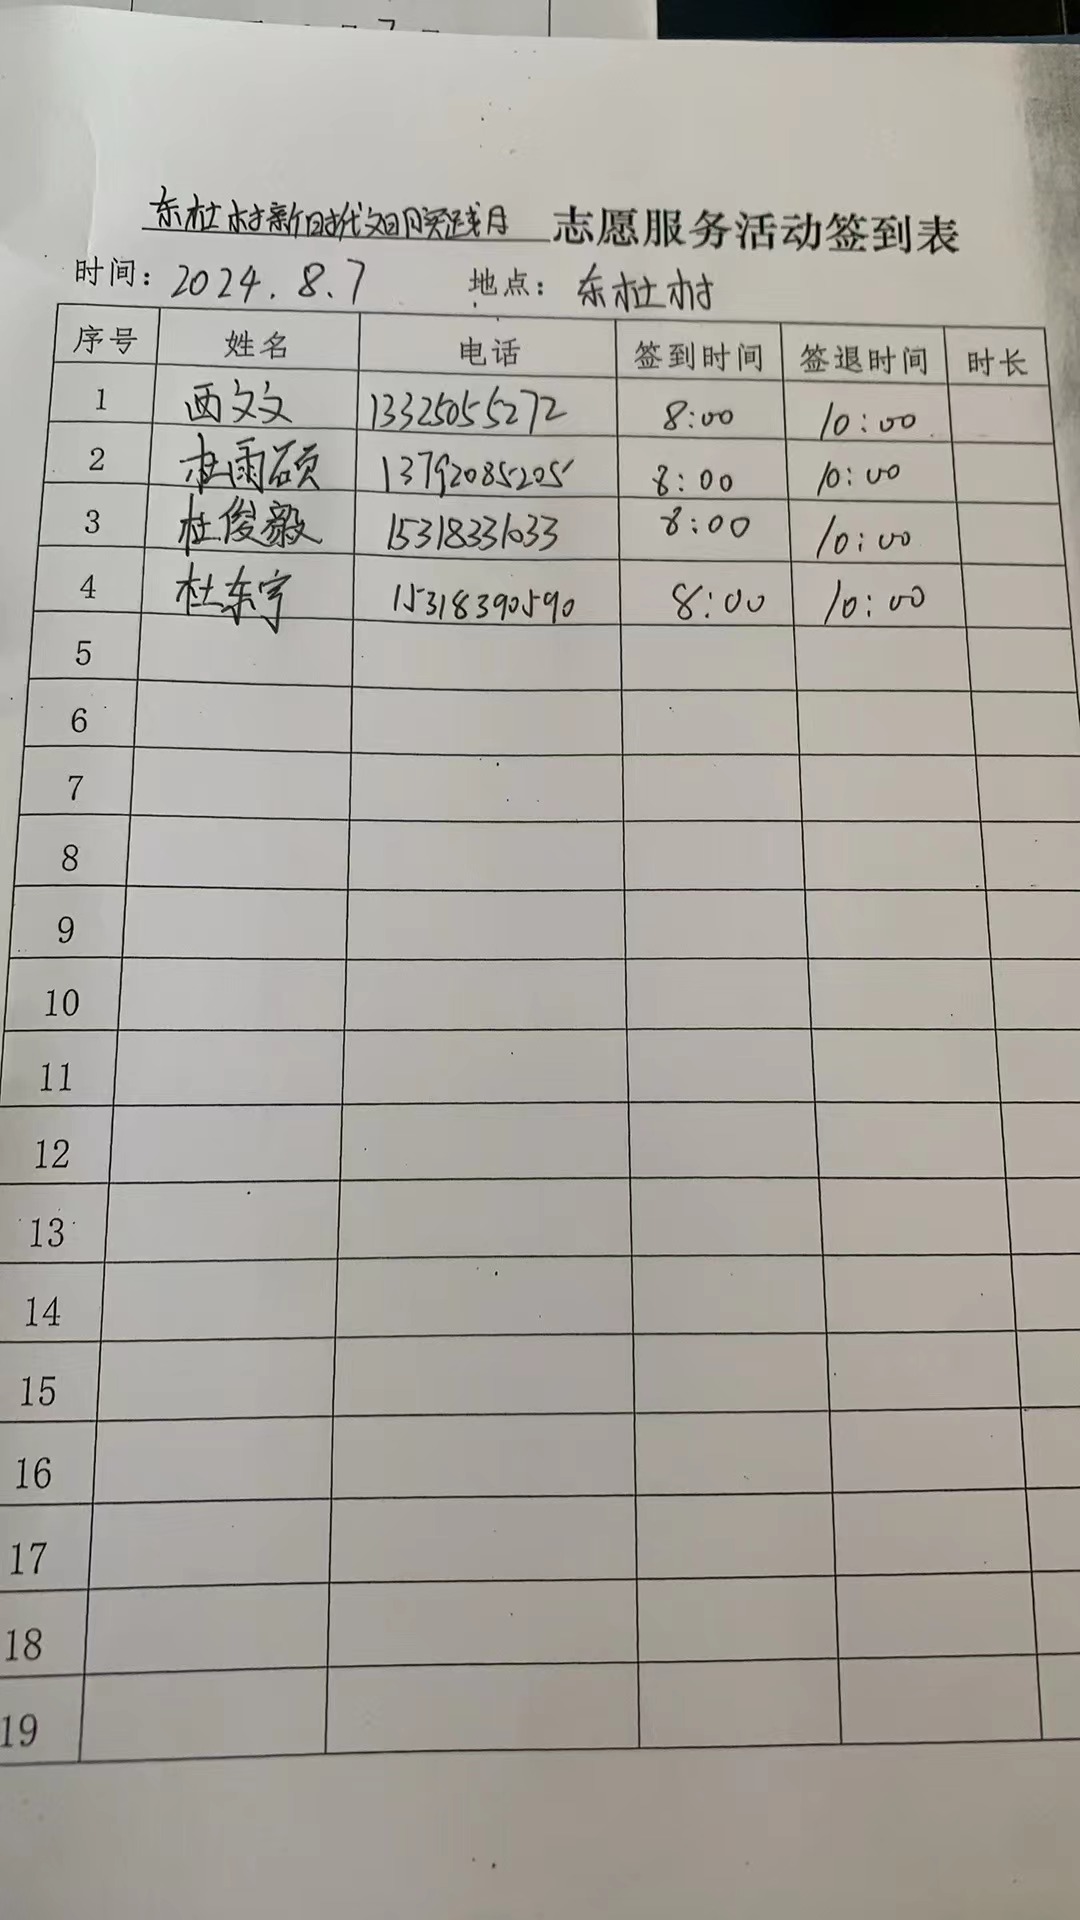 东杜村新时代文明实践月 志愿服务活动签到表
时间：2024.8.7 地点：东杜村
序号 姓名 电话 签到时间 签退时间 时长
1 西文文 13325055272 8:00 10:00
2 杜雨硕 13792085205 8:00 10:00
3 杜俊毅 15318331033 8:00 10:00
4 杜东宇 15318390590 8:00 10:00
5
6
7
8
9
10
11
12
13
14
15
16
17
18
19